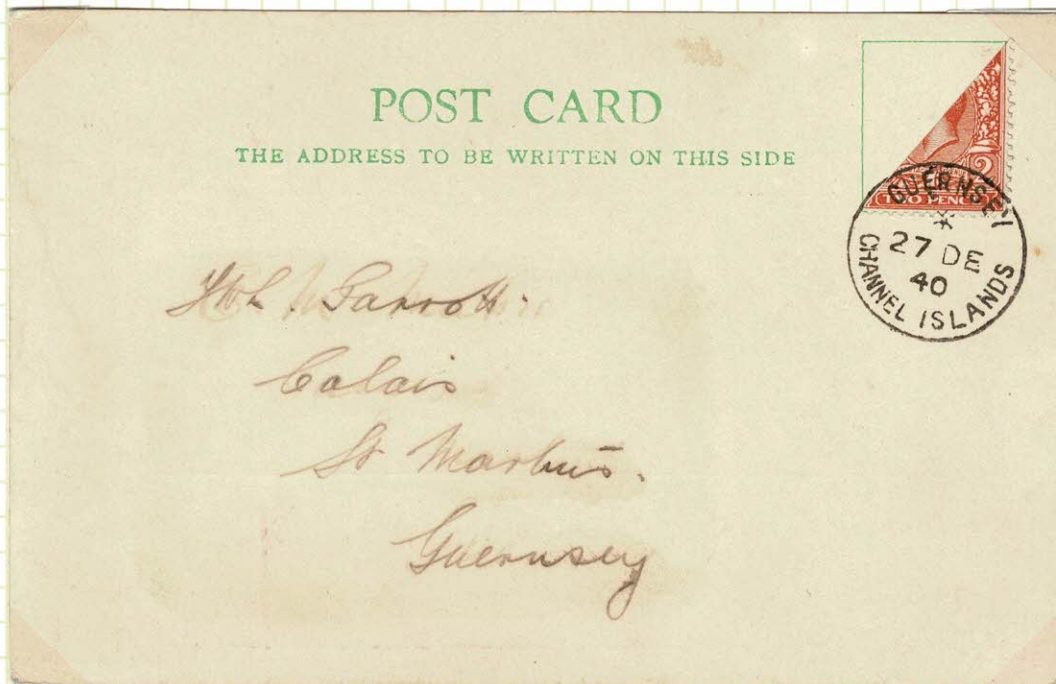 POST CARD
THE ADDRESS TO BE WRITTEN ON THIS SIDE
2
TWO PENC
GUERNSEY
27 DE
40
CHANNEL ISLANDS
Parrott.
Calais
St Martins.
Guernsey